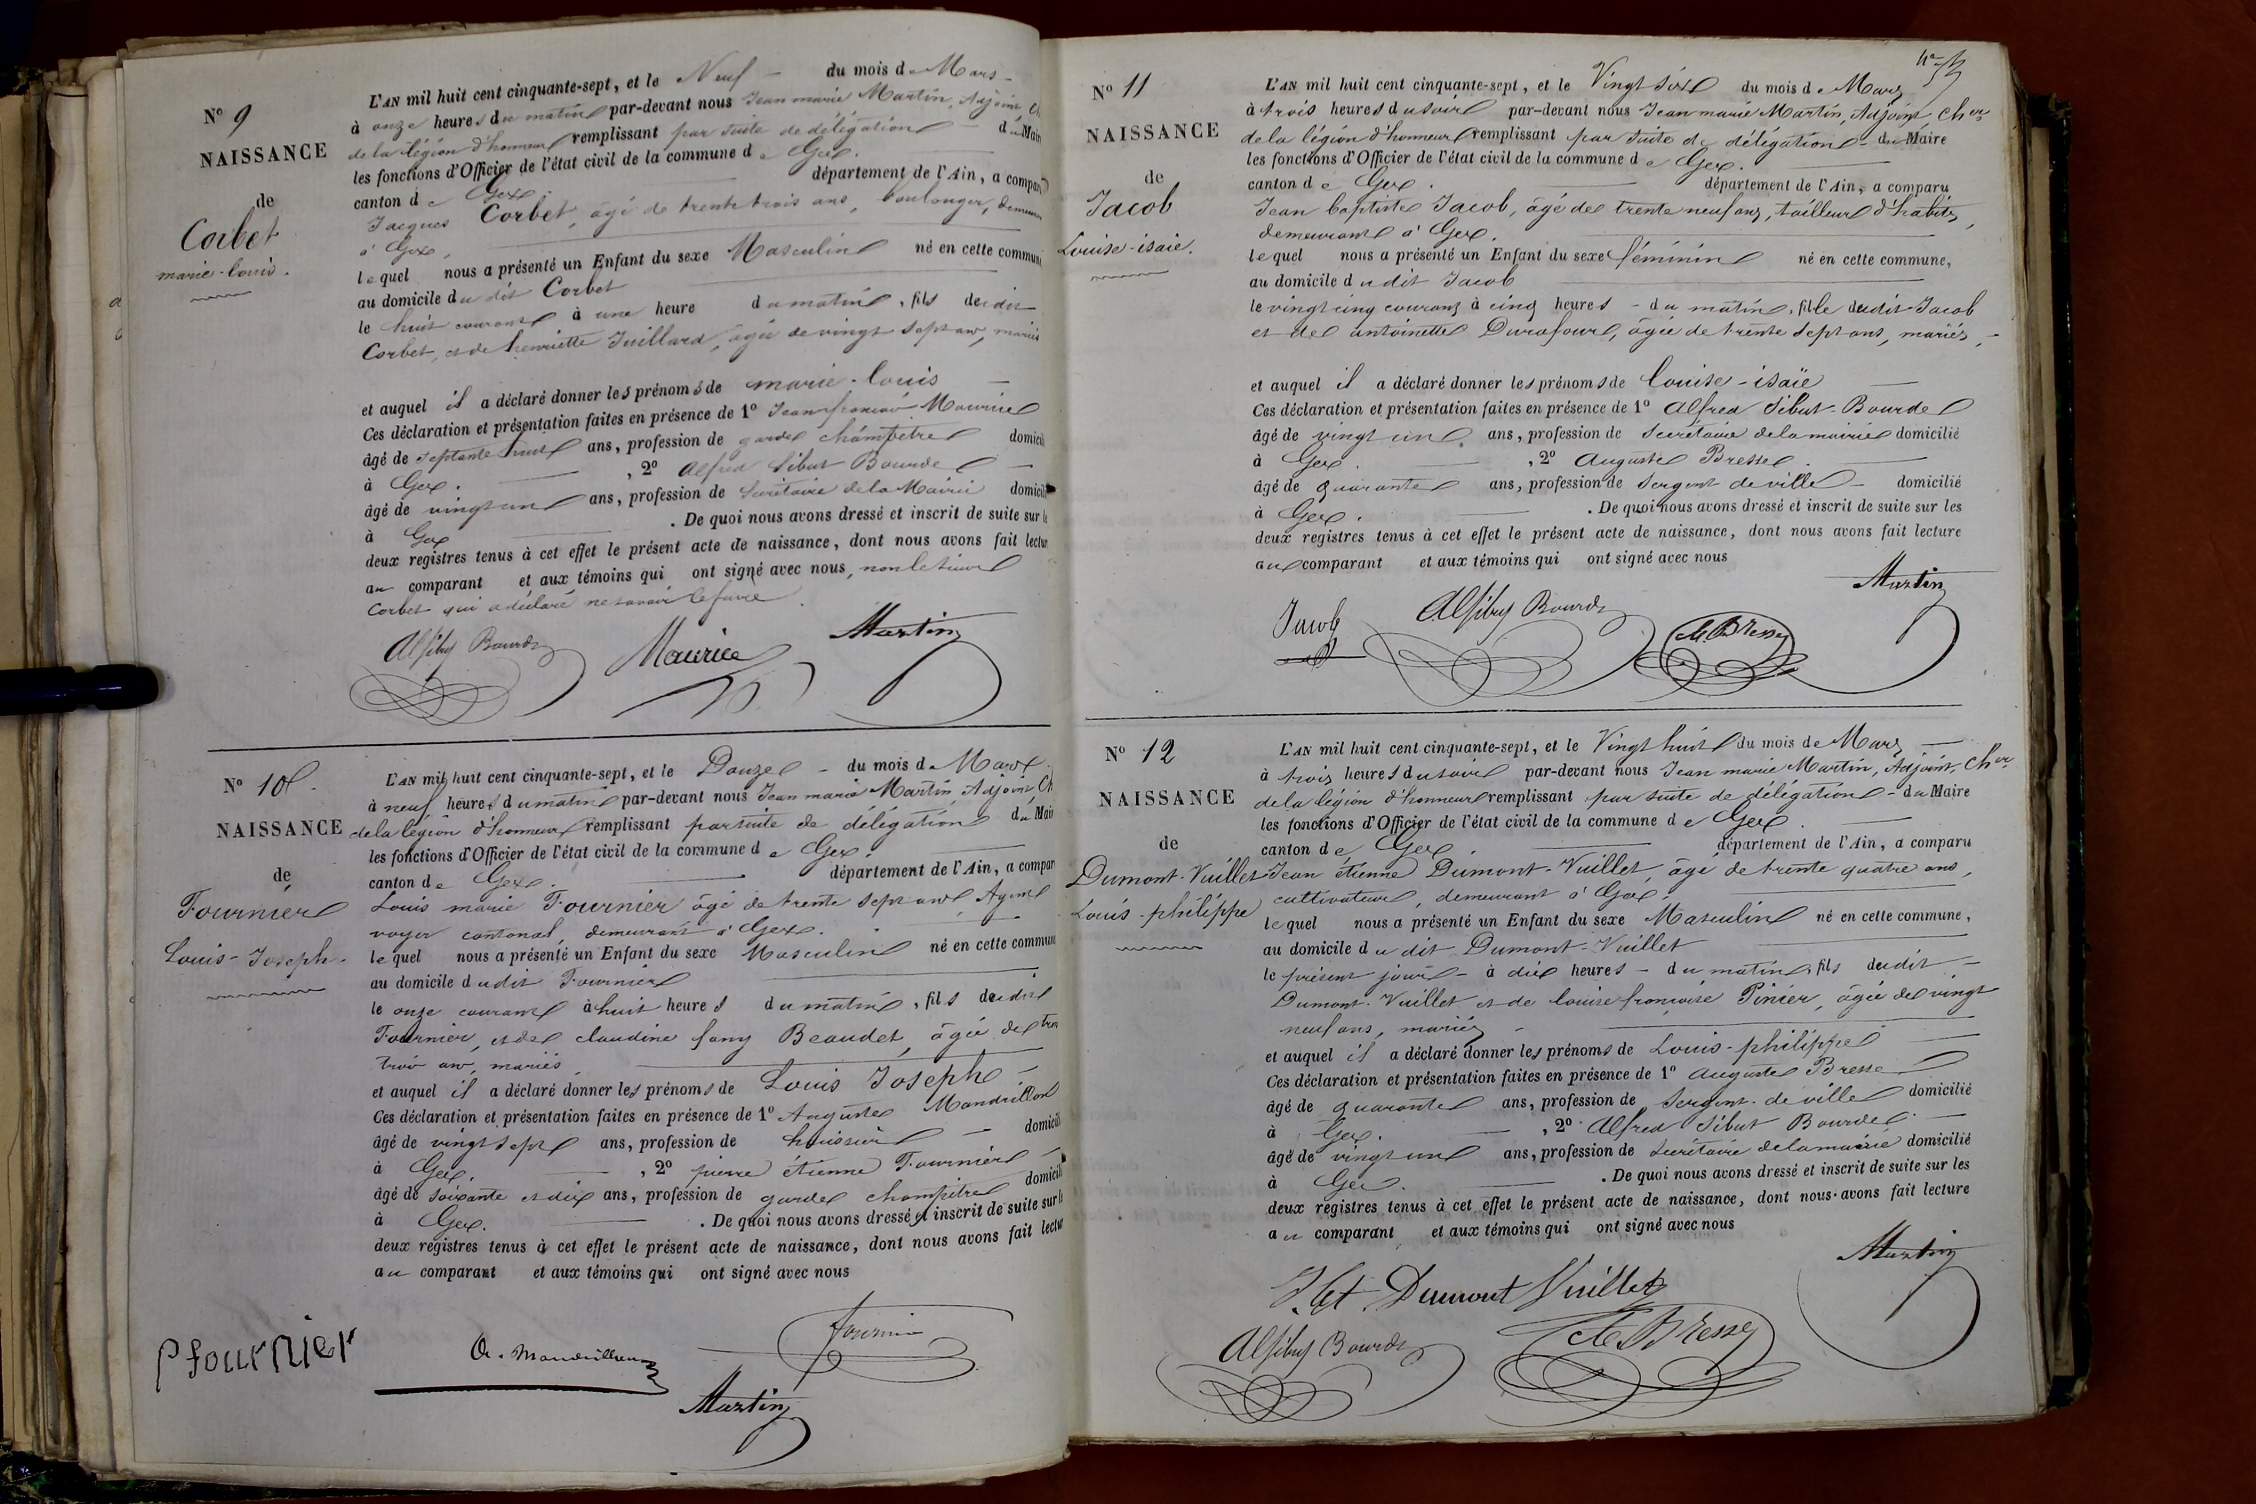 N° 9
NAISSANCE
de
Corbet
marie-louis.
L'AN mil huit cent cinquante-sept, et le Neuf - du mois de Mars -
à onze heures du matin par-devant nous Jean marie Martin, Adjoint, Ch
de la légion d'honneur remplissant par suite de délégation - du Mair
les fonctions d'Officier de l'état civil de la commune de Gex.
canton de Gex. département de l'Ain, a compar
Jacques Corbet, âgé de trente trois ans, boulanger, demeurant
à Gex,
lequel nous a présenté un Enfant du sexe Masculin né en cette commune
au domicile du dit Corbet
le huit courant à une heure du matin, fils dudit
Corbet, et de henriette Juillard, âgée de vingt sept ans, mariés
et auquel il a déclaré donner les prénoms de marie-louis
Ces déclaration et présentation faites en présence de 1° Jean françois Maurice
âgé de septante huit ans, profession de garde champêtre domicili
à Gex. , 2° Alfred Sibut Bourde
âgé de vingt un ans, profession de Secrétaire de la Mairie domicili
à Gex . De quoi nous avons dressé et inscrit de suite sur le
deux registres tenus à cet effet le présent acte de naissance, dont nous avons fait lectur
au comparant et aux témoins qui ont signé avec nous, non le sieur
Corbet qui a déclaré ne savoir le faire
Alf Sibut Bourde Maurice Martin
N° 10.
NAISSANCE
de
Fournier
Louis-Joseph.
L'AN mil huit cent cinquante-sept, et le Douze - du mois de Mars
à neuf heures du matin par-devant nous Jean marie Martin, Adjoint Ch
de la légion d'honneur remplissant par suite de délégation du Mair
les fonctions d'Officier de l'état civil de la commune de Gex.
canton de Gex. département de l'Ain, a compar
Louis marie Fournier âgé de trente sept ans, Agent
voyer cantonal, demeurant à Gex.
lequel nous a présenté un Enfant du sexe Masculin né en cette commune
au domicile dudit Fournier
le onze courant à huit heures du matin, fils dudit
Fournier, et de claudine fany Beaudet, âgée de tren
trois ans, mariés,
et auquel il a déclaré donner les prénoms de Louis Joseph
Ces déclaration et présentation faites en présence de 1° Auguste Mandrillon
âgé de vingt sept ans, profession de huissier - domicili
à Gex. , 2° pierre étienne Fournier
âgé de soixante et dix ans, profession de garde champêtre domicili
à Gex. . De quoi nous avons dressé et inscrit de suite sur le
deux registres tenus à cet effet le présent acte de naissance, dont nous avons fait lectur
au comparant et aux témoins qui ont signé avec nous
P fournier A. Mandrillon fournier
Martin
N° 11
NAISSANCE
de
Jacob
Louise-isaïe.
L'AN mil huit cent cinquante-sept, et le Vingt six du mois de Mars
à trois heures du soir par-devant nous Jean marie Martin, Adjoint, Cher
de la légion d'honneur remplissant par suite de délégation - du Maire
les fonctions d'Officier de l'état civil de la commune de Gex.
canton de Gex. département de l'Ain, a comparu
Jean baptiste Jacob, âgé de trente neuf ans, tailleur d'habits,
demeurant à Gex.
lequel nous a présenté un Enfant du sexe féminin né en cette commune,
au domicile dudit Jacob
le vingt cinq courant à cinq heures - du matin, fille dudit Jacob
et de antoinette Durafour, âgée de trente sept ans, mariés, -
et auquel il a déclaré donner les prénoms de Louise-isaïe
Ces déclaration et présentation faites en présence de 1° Alfred Sibut-Bourde
âgé de vingt un ans, profession de Secrétaire de la mairie domicilié
à Gex. , 2° Auguste Bresse.
âgé de quarante ans, profession de Sergent de ville - domicilié
à Gex. . De quoi nous avons dressé et inscrit de suite sur les
deux registres tenus à cet effet le présent acte de naissance, dont nous avons fait lecture
au comparant et aux témoins qui ont signé avec nous
Martin
Jacob Alf Sibut Bourde A. Bresse
N° 12
NAISSANCE
de
Dumont-Vuillet
Louis-philippe
L'AN mil huit cent cinquante-sept, et le Vingt huit du mois de Mars
à trois heures du soir par-devant nous Jean marie Martin, Adjoint, Cher
de la légion d'honneur remplissant par suite de délégation - du Maire
les fonctions d'Officier de l'état civil de la commune de Gex.
canton de Gex département de l'Ain, a comparu
Jean étienne Dumont-Vuillet, âgé de trente quatre ans,
cultivateur, demeurant à Gex,
lequel nous a présenté un Enfant du sexe Masculin né en cette commune,
au domicile du dit Dumont-Vuillet
le présent jour - à dix heures - du matin, fils dudit -
Dumont-Vuillet et de louise françoise Pinier, âgée de vingt
neuf ans, mariés -
et auquel il a déclaré donner les prénoms de Louis-philippe
Ces déclaration et présentation faites en présence de 1° Auguste Bresse
âgé de quarante ans, profession de Sergent de ville domicilié
à Gex. , 2° Alfred Sibut Bourde
âgé de vingt un ans, profession de Secrétaire de la mairie domicilié
à Gex. . De quoi nous avons dressé et inscrit de suite sur les
deux registres tenus à cet effet le présent acte de naissance, dont nous avons fait lecture
au comparant et aux témoins qui ont signé avec nous
Martin
Dumont Vuillet
Alf Sibut Bourde A. Bresse